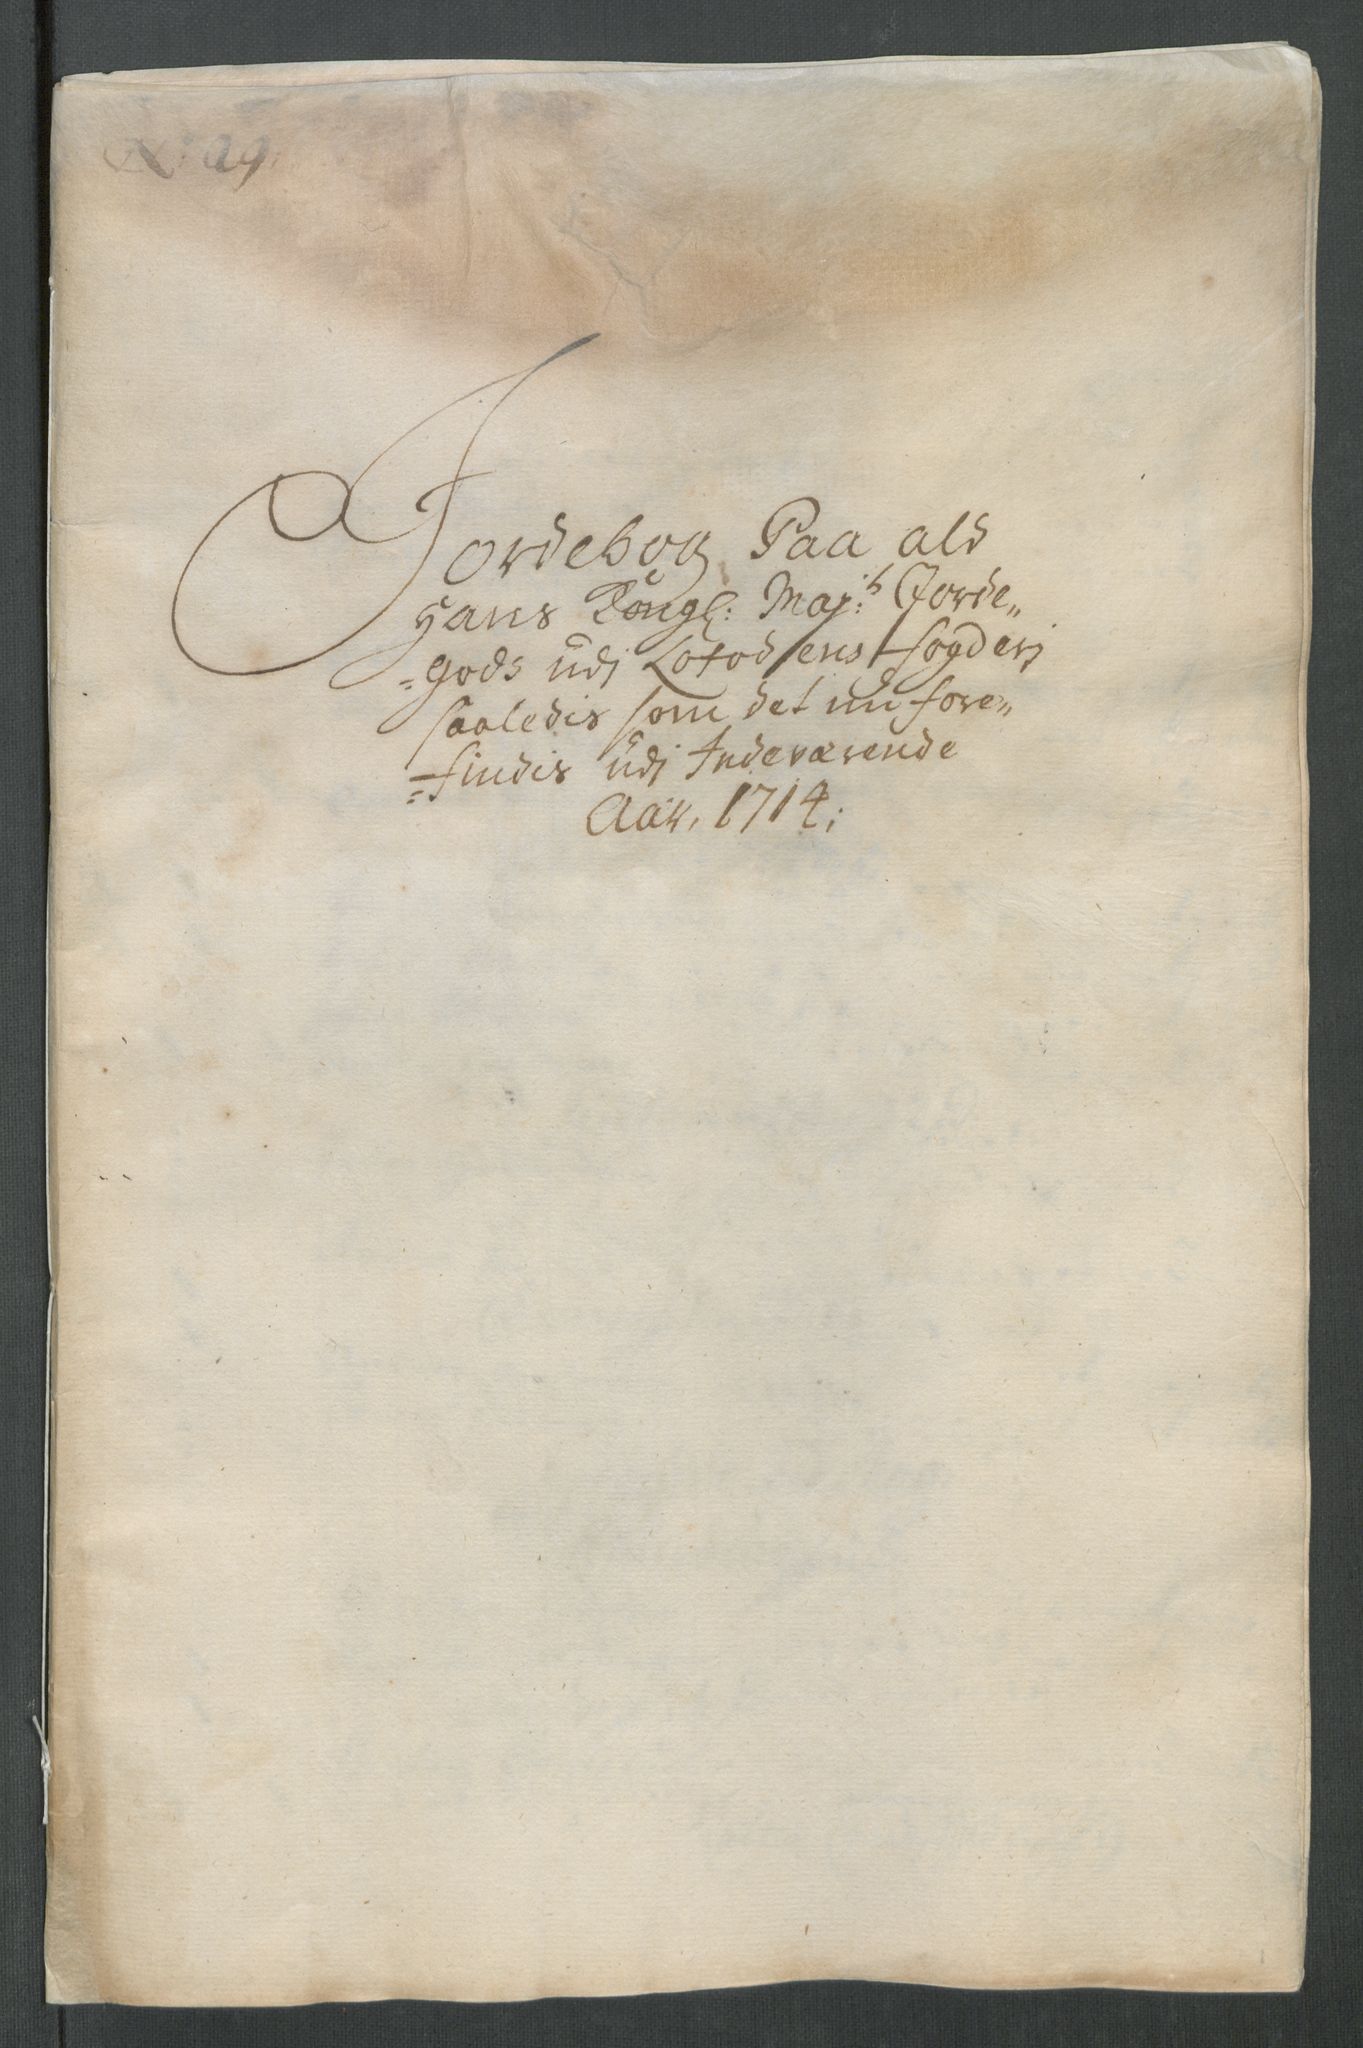 No: 29.
Jordebog Paa ald
Hans Kongl: Maj:ts Jorde„
=gods udj Lofodens fogderj
saaledis som det nu fore„
=findis udj Indeværende
Aar, 1714;